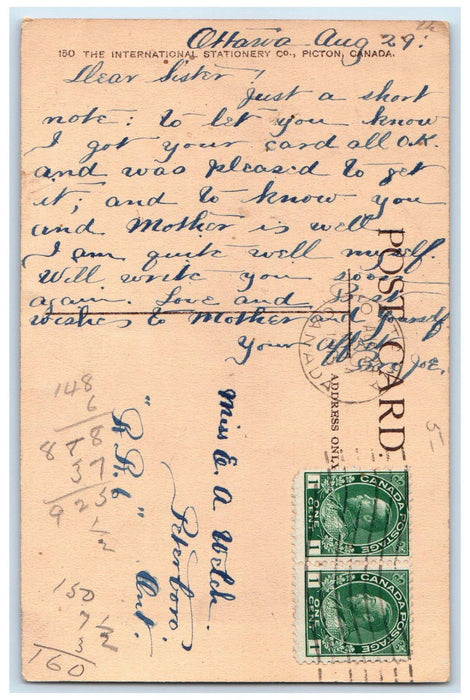 Ottawa Aug 29.
150 THE INTERNATIONAL STATIONERY CO., PICTON, CANADA.
Dear Sister!
Just a short
note: to let you know
I got your card all O.K.
and was pleased to get
it; and to know you
and Mother is well
I am quite well myself.
Will write you soon
again. Love and Best
wishes to Mother and yourself
Your Affect
Bro Joe.
POST CARD.
ADDRESS ONLY
OTTAWA
CANADA
Miss E. A. Welch.
Peterboro.
"R.R. 6"
Ont.
CANADA POSTAGE
1 ONE CENT 1
CANADA POSTAGE
1 ONE CENT 1
148
6
8
37
9 25 1/2
150
7 1/2
3
160
5-